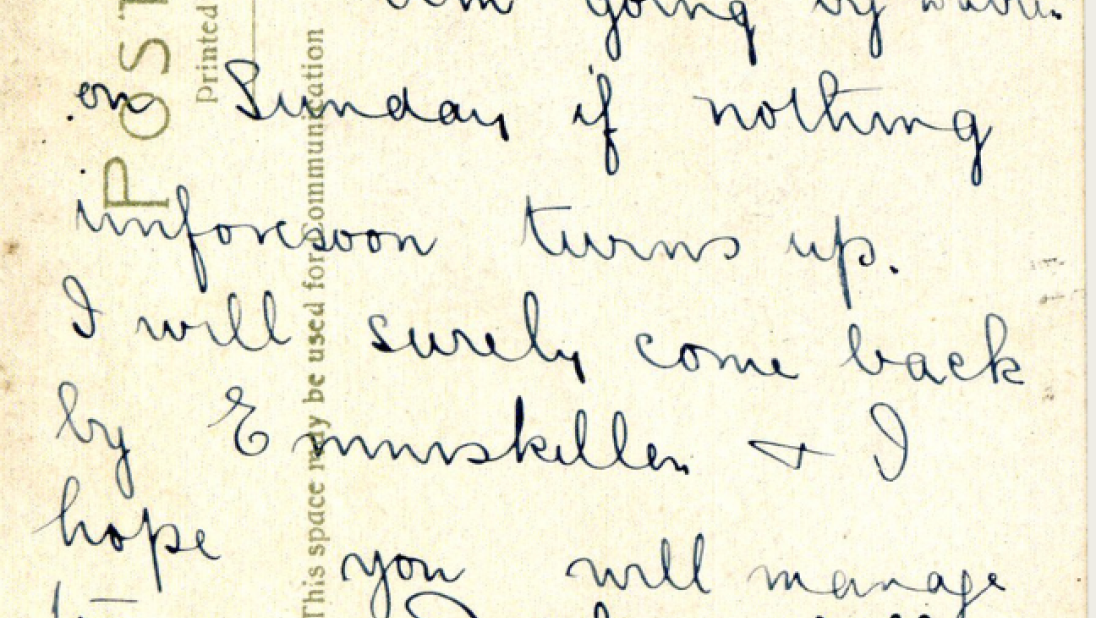 going by
on Sunday if nothing
unforeseen turns up.
I will surely come back
by Enniskillen & I
hope you will manage
POST
Printed
This space may be used for Communication